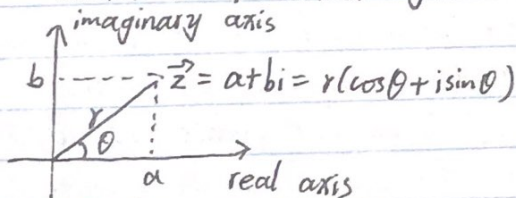 imaginary axis
b
z⃗ = a+bi = r(cosθ + isinθ)
r
θ
a
real axis